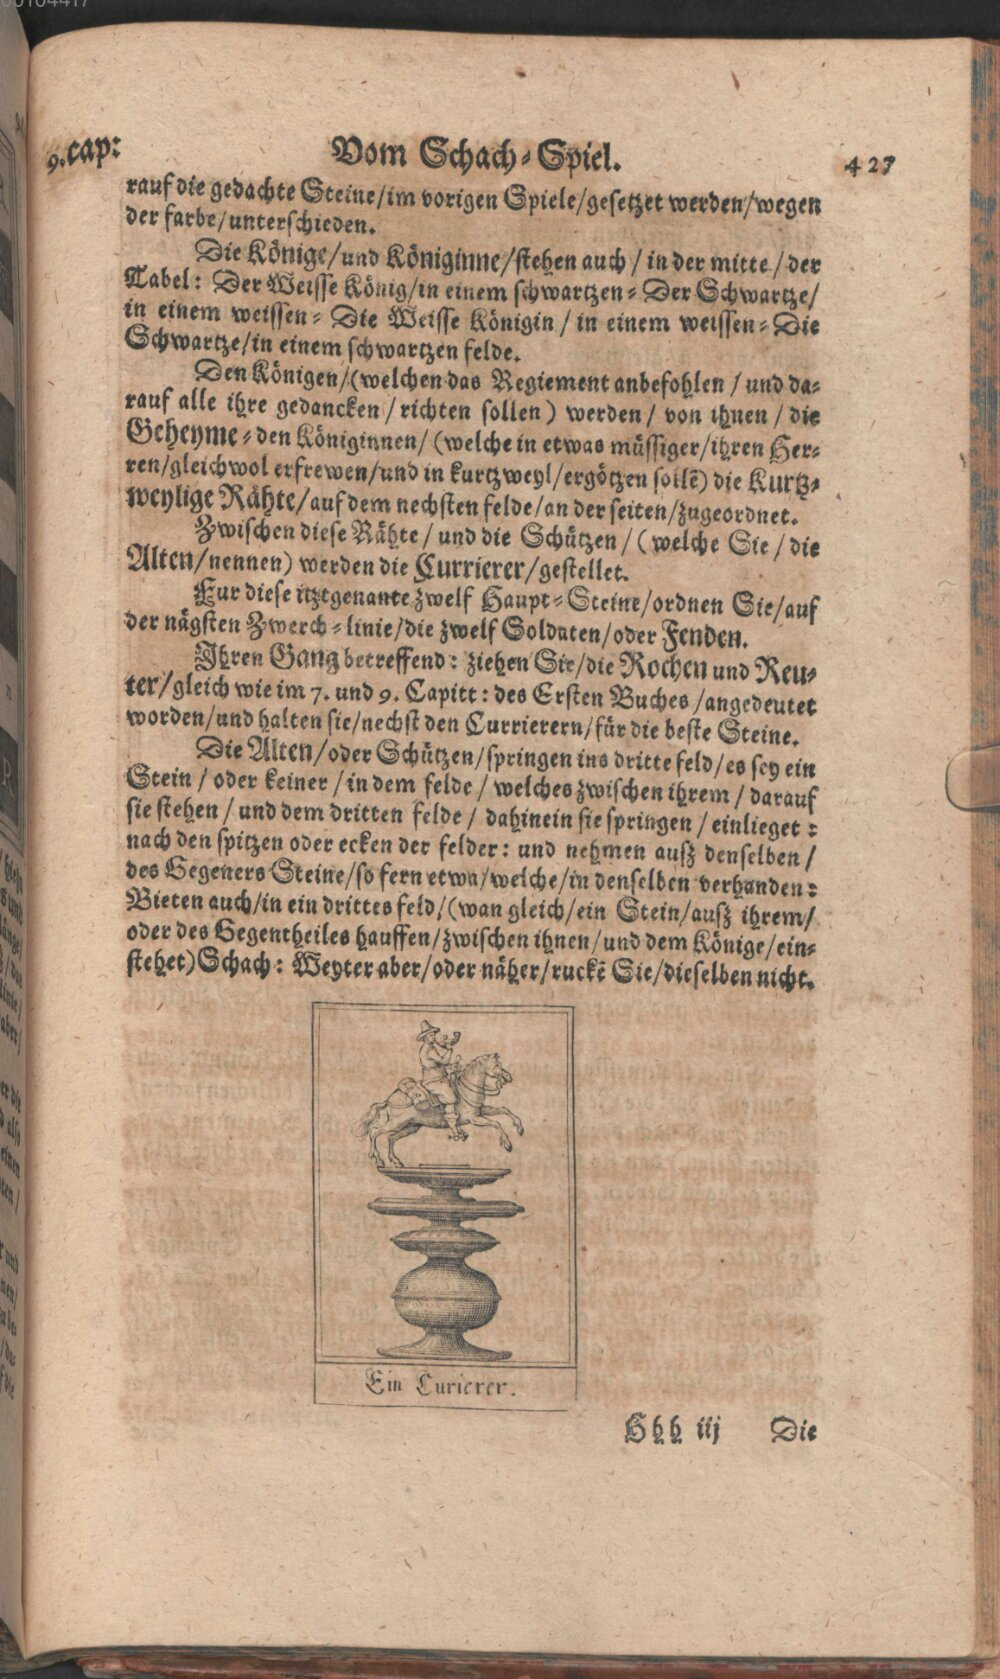 00104417
9. cap: Vom Schach-Spiel. 427
rauf die gedachte Steine/im vorigen Spiele/gesetzet werden/wegen
der farbe/unterschieden.
Die Könige/und Königinne/stehen auch/in der mitte/der
Tabel: Der Weisse König/in einem schwartzen-Der Schwartze/
in einem weissen-Die Weisse Königin/in einem weissen-Die
Schwartze/in einem schwartzen felde.
Den Königen/(welchen das Regiement anbefohlen/und da-
rauf alle ihre gedancken/richten sollen) werden/von ihnen/die
Geheyme-den Königinnen/(welche in etwas müssiger/ihren Her-
ren/gleichwol erfrewen/und in kurtzweyl/ergötzen sollẽ) die Kurtz-
weylige Rähte/auf dem nechsten felde/an der seiten/zugeordnet.
Zwischen diese Rähte/und die Schützen/(welche Sie/die
Alten/nennen) werden die Currierer/gestellet.
Fur diese itztgenante zwelf Haupt-Steine/ordnen Sie/auf
der nägsten Zwerch-linie/die zwelf Soldaten/oder Fenden.
Ihren Gang betreffend: ziehen Sie/die Rochen und Reu-
ter/gleich wie im 7. und 9. Capitt: des Ersten Buches/angedeutet
worden/und halten sie/nechst den Currierern/für die beste Steine.
Die Alten/oder Schützen/springen ins dritte feld/es sey ein
Stein/oder keiner/in dem felde/welches zwischen ihrem/darauf
sie stehen/und dem dritten felde/dahinein sie springen/einlieget:
nach den spitzen oder ecken der felder: und nehmen ausz denselben/
des Gegeners Steine/so fern etwa/welche/in denselben verhanden:
Bieten auch/in ein drittes feld/(wan gleich/ein Stein/ausz ihrem/
oder des Gegentheiles hauffen/zwischen ihnen/und dem Könige/ein-
stehet) Schach: Weyter aber/oder näher/ruckẽ Sie/dieselben nicht.
Ein Curierer.
Hhh iij Die